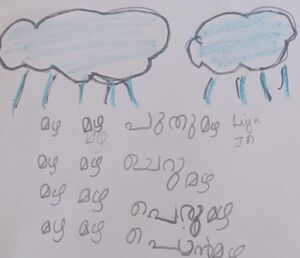 മഴ മഴ പുതുമഴ Liya
മഴ IA
മഴ മഴ ചെറു
മഴ
മഴ മഴ പെരുമഴ
മഴ മഴ പൊൻമഴ